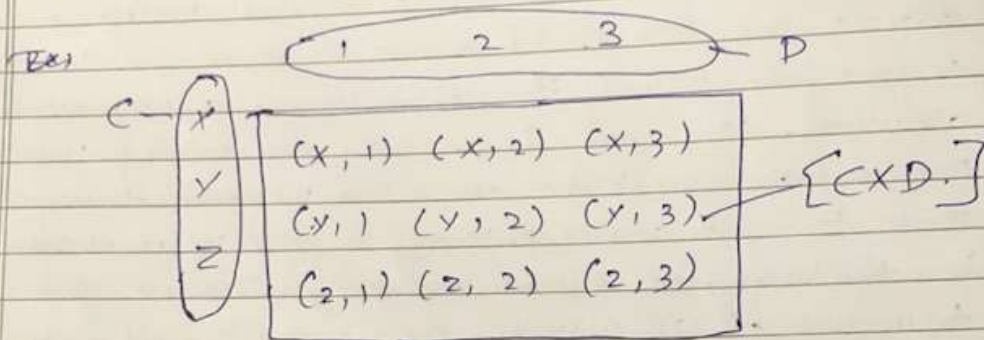 Ex)
1 2 3 D
C X
Y
Z
(X, 1) (X, 2) (X, 3)
(Y, 1 (Y, 2) (Y, 3)
(Z, 1) (Z, 2) (Z, 3)
[CXD.]